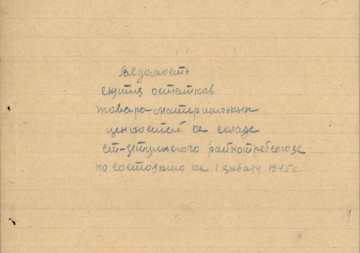 Ведомость
снятия остатков
товаро-материальных
ценностей на складе
райпотребсоюза
по состоянию на 1 января 1945 г.